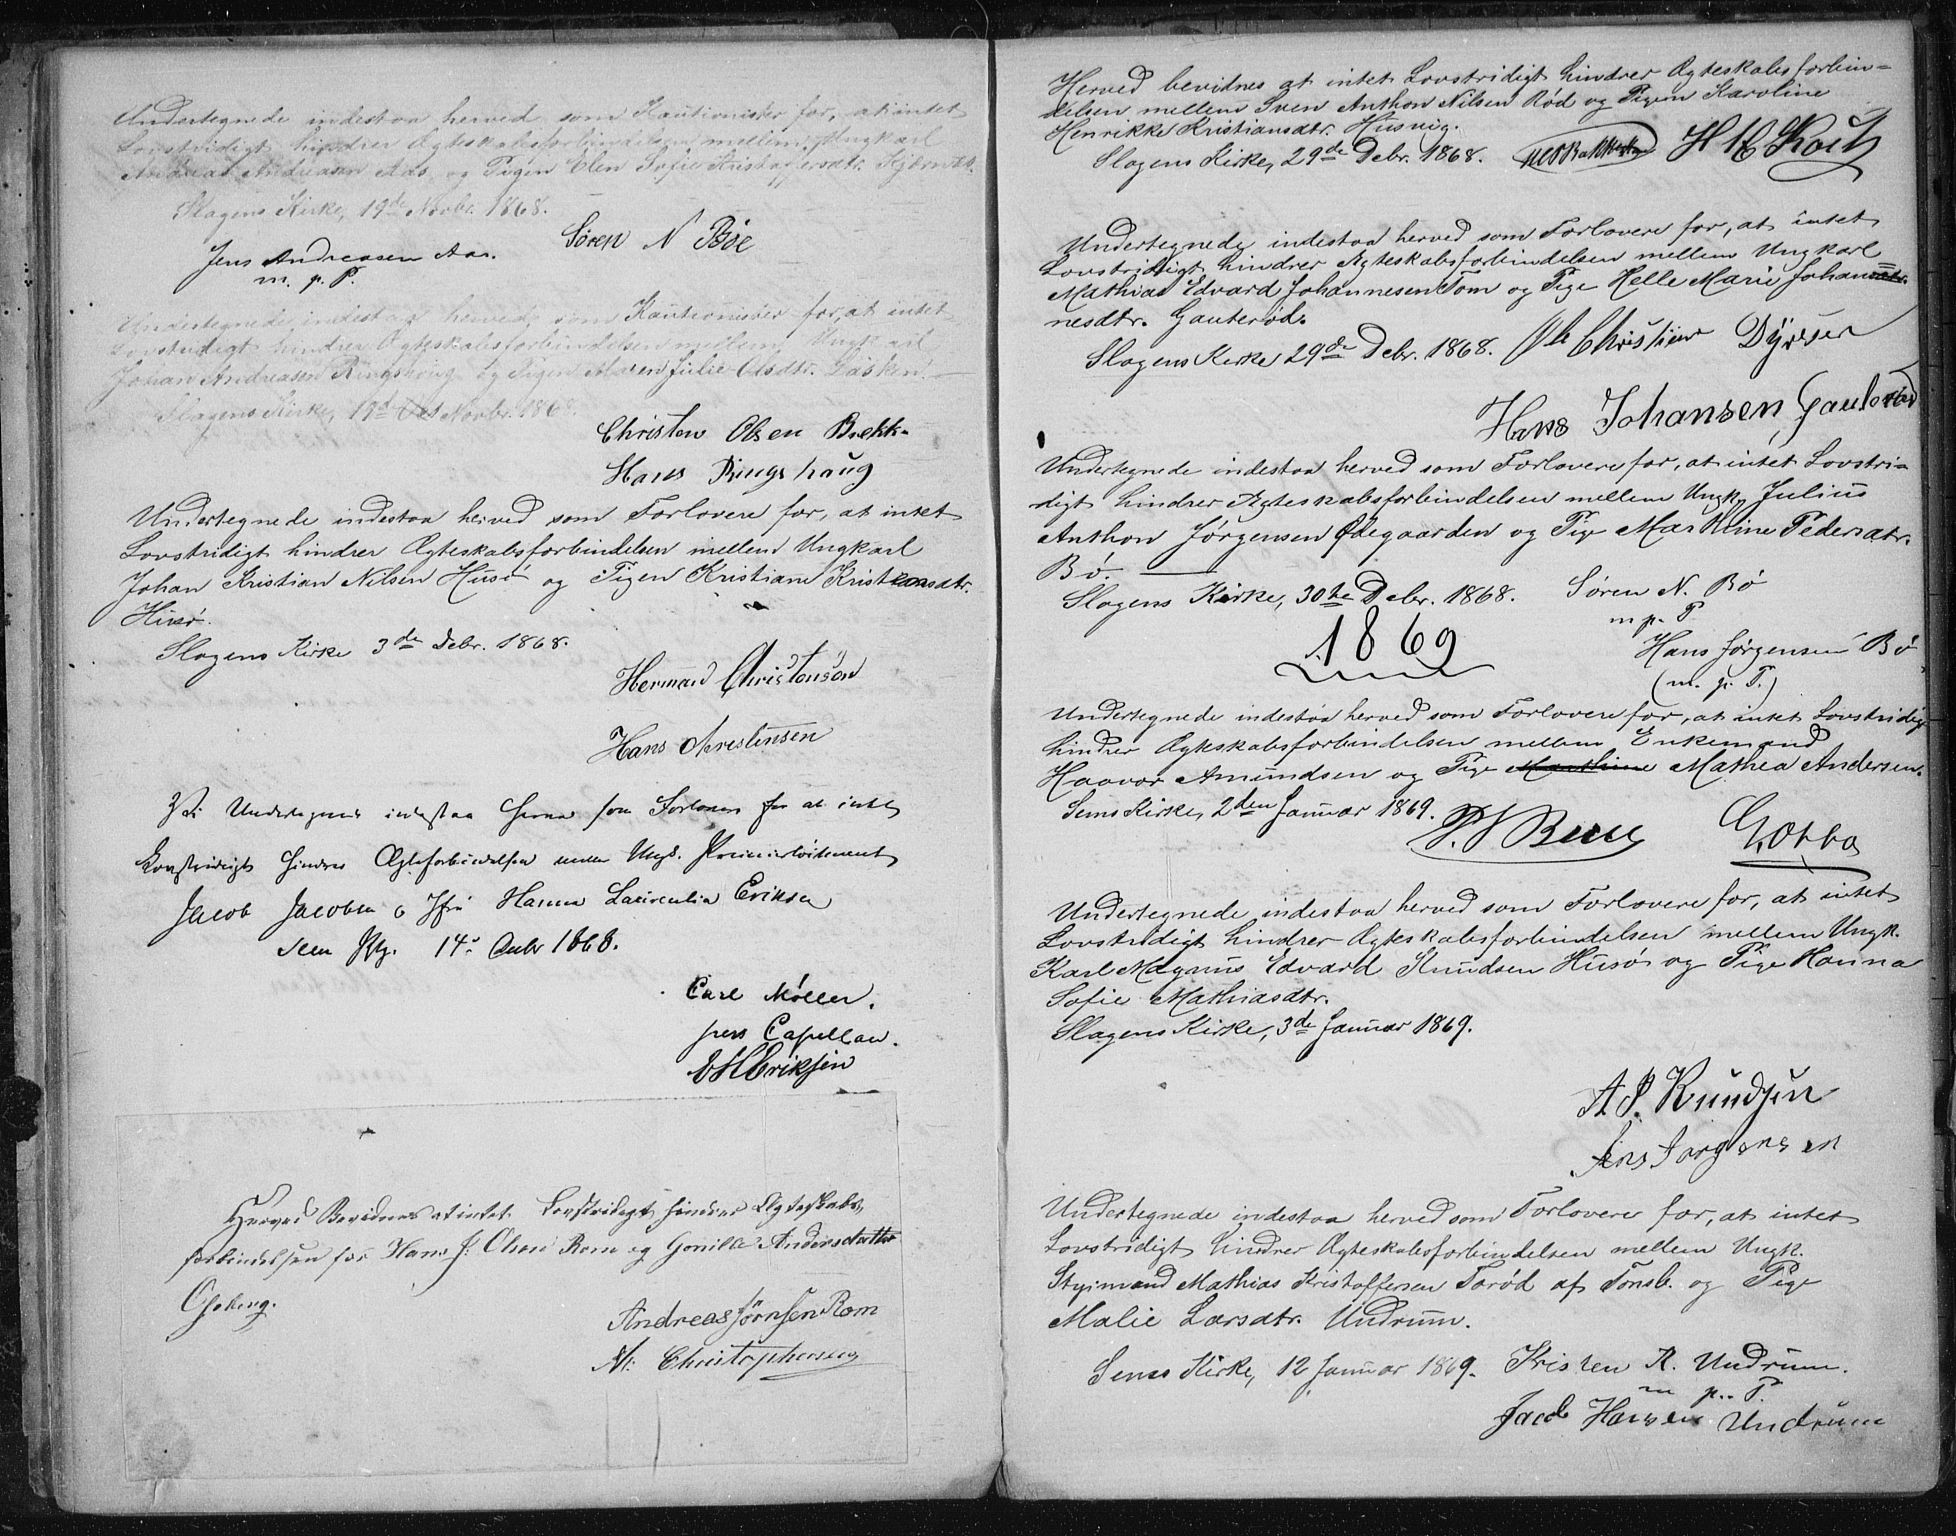 Undertegnede indestaa herved som Kautionister for, at intet
Lovstridigt hindrer Ægteskabsforbindelsen mellem Ungkarl
Andreas Andreasen Aas og Pigen Elen Sofie Kristoffersdtr.
Slagens Kirke, 19de Novbr. 1868.
Søren N Bøe
Jens Andreasen Aas.
m. p. P.
Undertegnede indestaa herved som Kautionister for, at intet
Lovstridigt hindrer Ægteskabsforbindelsen mellem Ungkarl
Johan Andreasen Ringshoug og Pigen Maren Julie Olsdtr.
Slagens Kirke, 19de Novbr. 1868.
Christen Olsen Bækk
Hans Ringshaug
Undertegnede indestaa herved som Forlovere for, at intet
Lovstridigt hindrer Ægteskabsforbindelsen mellem Ungkarl
Johan Kristian Nilsen Husø og Pigen Kristiane Kristensdtr.
Husø.
Slagens Kirke 3de Debr. 1868.
Herman Christensen
Hans Christensen
Vi Undertegnede indestaa herved som Forlovere for at intet
Lovstridigt hindrer Ægteforbindelsen mellem Ungk. Premierløitenent
Jacob Jacobsen og Jfr. Hanna Laurentia Eriksen
Sem 14de 1868.
Carl Møller.
pers Capellan.
Eriksen
Herved Bevidnes at intet Lovstridigt hindrer Ægteskabs,,
forbindelsen for Hans J. Olsen Rom og Gonille Andersdatter
Andreas Jørnsen Rom
N: Christophersen
Herved bevidnes at intet Lovstridigt hindrer Ægteskabsforbin=
delsen mellem Sven Anthon Nilsen Rød og Pigen Karoline
Henrikke Kristiansdtr. Husvig.
Slagens Kirke, 29de Debr. 1868.
Undertegnede indestaa herved som Forlovere for, at intet
Lovstridigt hindrer Ægteskabsforbindelsen mellem Ungkarl
Mathias Edvard Johannesen Tom og Pige Helle Marie Johan=
nesdtr. Gauterød.
Slagens Kirke 29de Debr. 1868. Ole Christian Dyrsø
Hans Johansen, Gauterød
Undertegnede indestaa herved som Forlovere for, at intet Lovstri=
digt hindrer Ægteskabsforbindelsen mellem Ungk. Julius
Anthon Jørgensen Ødegaarden og Pige Marthine Pedersdtr.
Bø.
Slagens Kirke, 30te Debr. 1868. Søren N. Bø
m p. P
Hans Jørgensen Bø
(m. p. P.)
1869
Undertegnede indestaa herved som Forlovere for, at intet Lovstridigt
hindrer Ægteskabsforbindelsen mellem Enkemand
Haavor Amundsen og Pige Marthine Mathea Andersen.
Sems Kirke, 2den Januar 1869.
Undertegnede indestaa herved som Forlovere for, at intet
Lovstridigt hindrer Ægteskabsforbindelsen mellem Ungk.
Karl Magnus Edvard Knudsen Husø og Pige Hanna
Sofie Mathiasdtr.
Slagens Kirke, 3de Januar 1869.
A P. Knudsen
Jens Jørgensen
Undertegnede indestaa herved som Forlovere for, at intet
Lovstridigt hindrer Ægteskabsforbindelsen mellem Ungk.
Styrmand Mathias Kristoffersen Farød af Tønsb. og Pige
Malie Larsdtr. Undrum.
Sems Kirke, 12 Januar 1869. Kristen R. Undrum.
m p. P.
Jacob Hansen Undrum